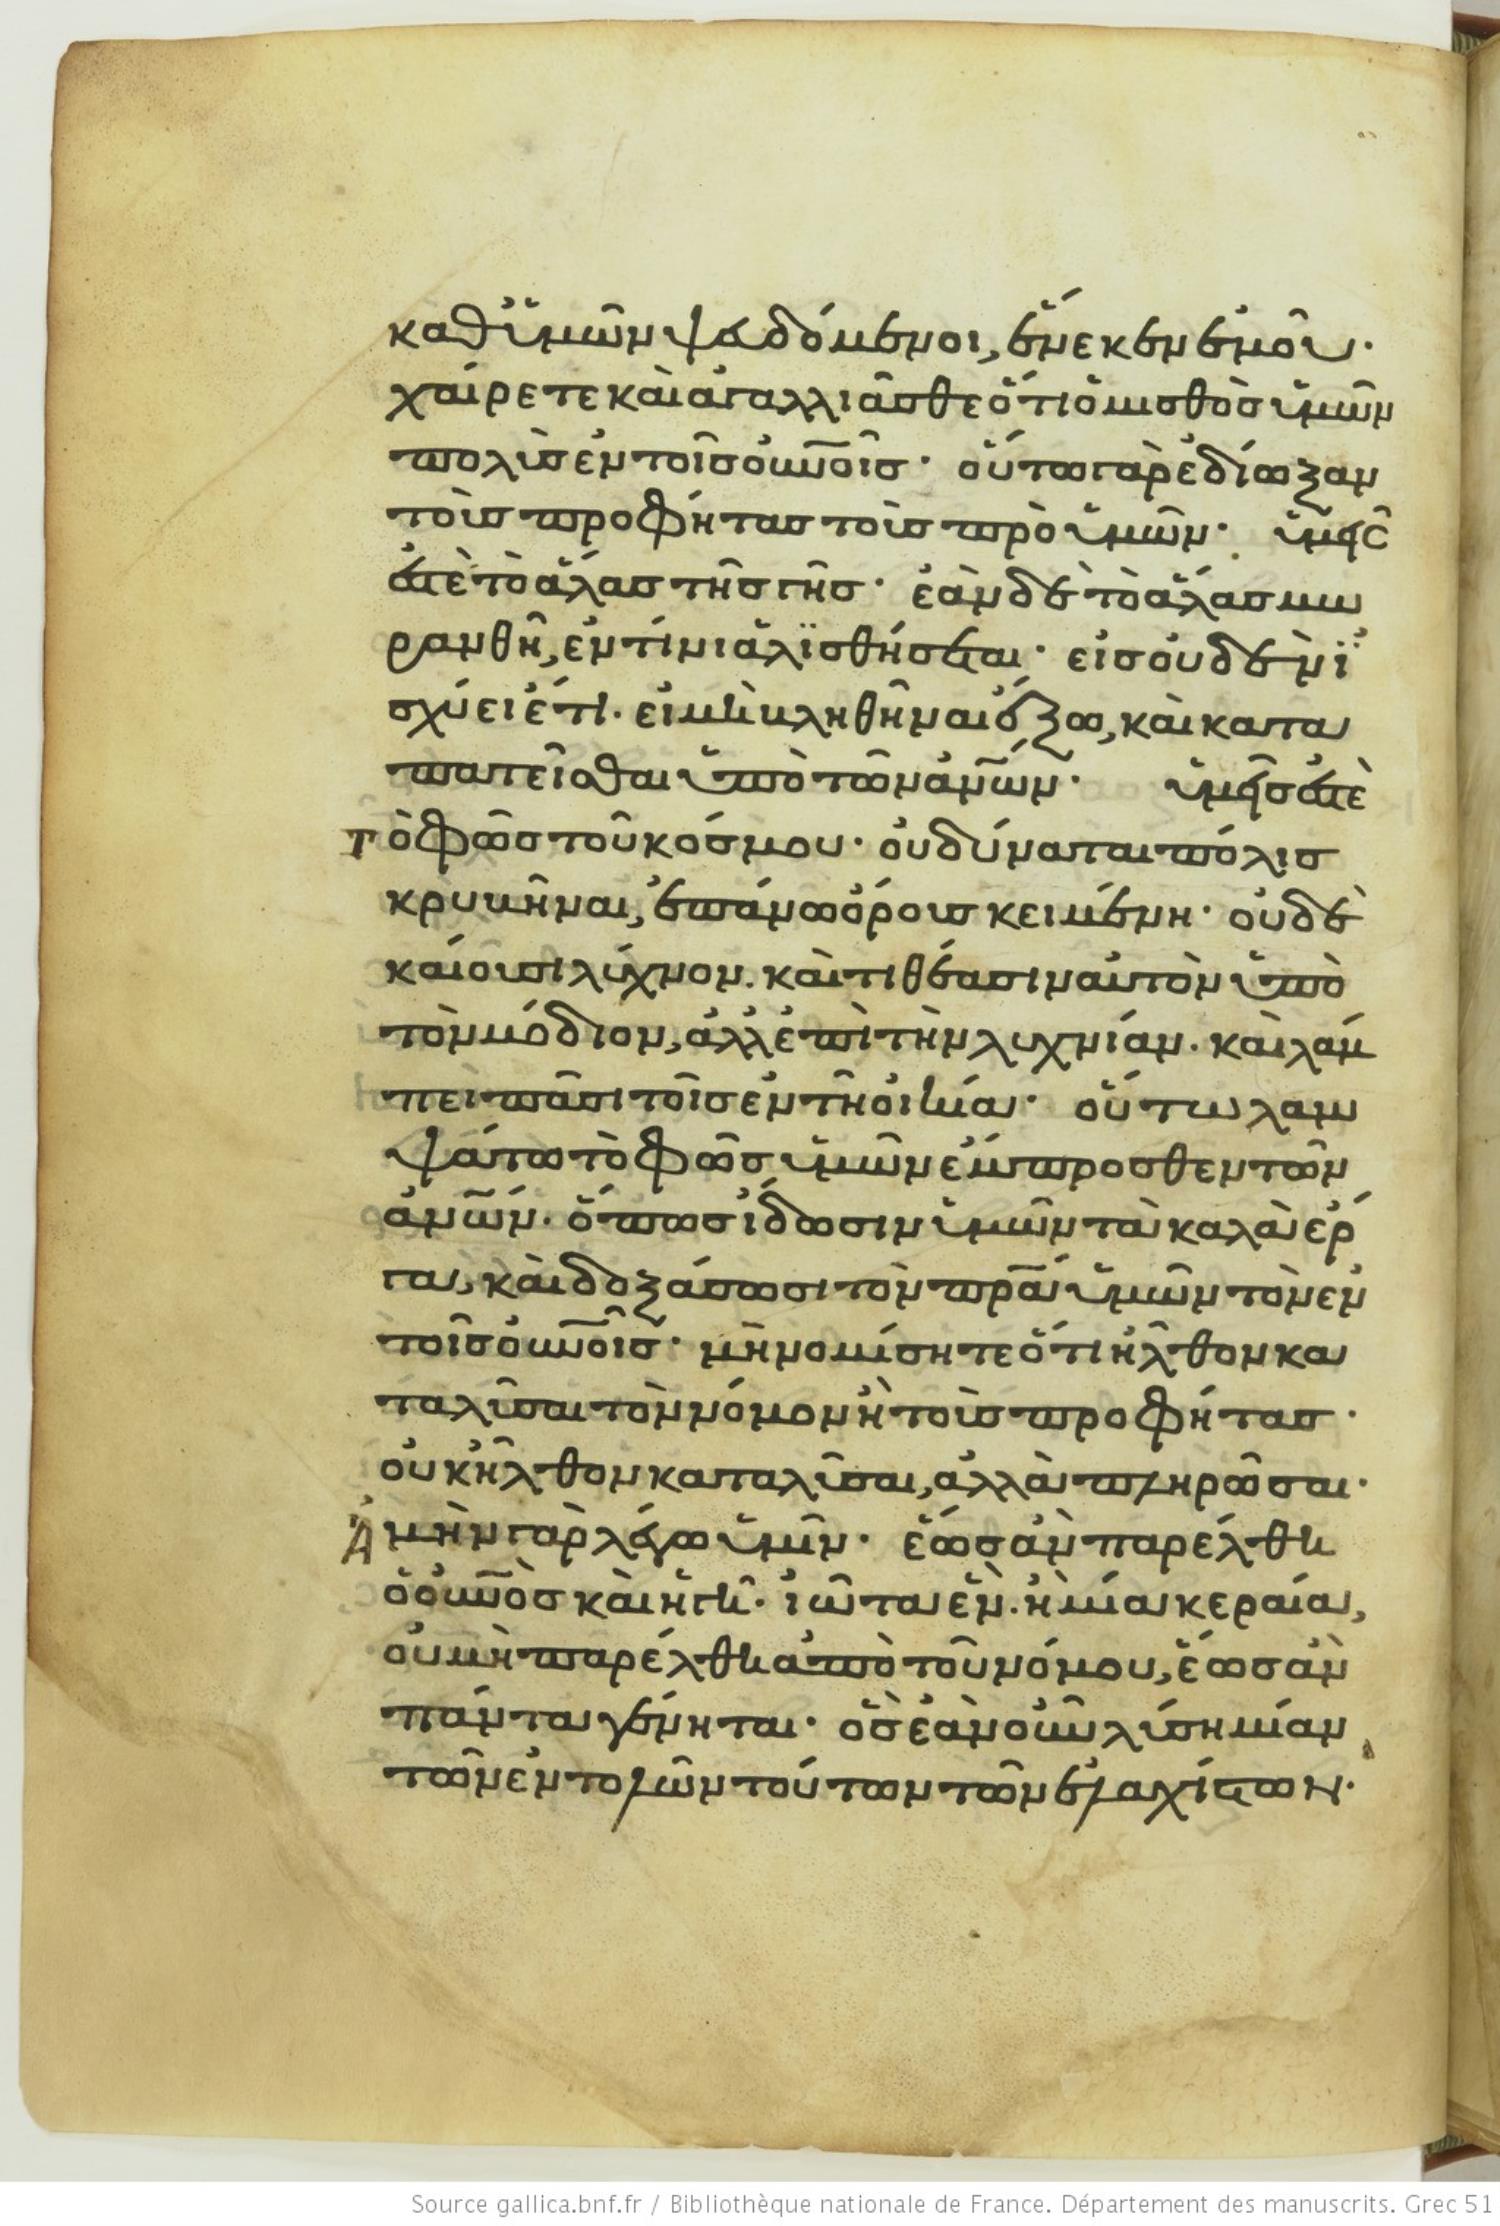 καθ ὑμῶν ψευδόμενοι, ἕνεκεν ἐμοῦ·
χαίρετε καὶ ἀγαλλιᾶσθε ὅτι ὁ μισθὸσ ὑμῶν
πολὺσ ἐν τοῖσ οὐνοῖσ· οὕτω γὰρ ἐδίωξαν
τοὺσ προφήτασ τοὺσ πρὸ ὑμῶν· ὑμεῖσ
ἐστὲ τὸ ἅλασ τῆσ γῆσ· ἐὰν δὲ τὸ ἅλασ μω
ρανθῆ, ἐν τίνι ἁλϊσθήσεται· εἰσ οὐδὲν ϊ
σχύει ἔτι. εἰ μὴ βληθῆναι ἔξω, καὶ κατα
πατεῖσθαι ὑπὸ τῶν ἀνων· ὑμεῖσ ἐστὲ
τὸ φῶσ τοῦ κόσμου· οὐ δύναται πόλισ
κρυβῆναι, ἐπάνω ὄρουσ κειμένη· οὐδὲ
καίουσι λύχνον. καὶ τιθέασιν αὐτὸν ὑπὸ
τὸν μόδιον, ἀλλ ἐπὶ τὴν λυχνίαν. καὶ λάμ
πει πᾶσι τοῖσ ἐν τῆ οἰκία· οὕτω λαμ
ψάτω τὸ φῶσ ὑμῶν ἔμπροσθεν τῶν
ἀνων. ὅπωσ ἴδωσιν ὑμῶν τὰ καλὰ ἔρ
γα, καὶ δοξάσωσι τὸν πρα ὑμῶν τὸν ἐν
τοῖσ οὐνοῖσ· μὴ νομίσητε ὅτι ἦλθον κα
ταλῦσαι τὸν νόμον ἢ τοὺσ προφήτασ·
οὐκ ἦλθον καταλῦσαι, ἀλλὰ πληρῶσαι·
Ἀμὴν γὰρ λέγω ὑμῖν· ἕωσ ἂν παρέλθη
ὁ οὐνὸσ καὶ ἡ γῆ· ἰῶτα ἓν. ἢ μία κεραία,
οὐ μὴ παρέλθη ἀπὸ τοῦ νόμου, ἕωσ ἂν
πάντα γένηται· ὃσ ἐὰν οὖν λύση μίαν
τῶν ἐντολῶν τούτων τῶν ἐλαχίστων·
Source gallica.bnf.fr / Bibliothèque nationale de France. Département des manuscrits. Grec 51